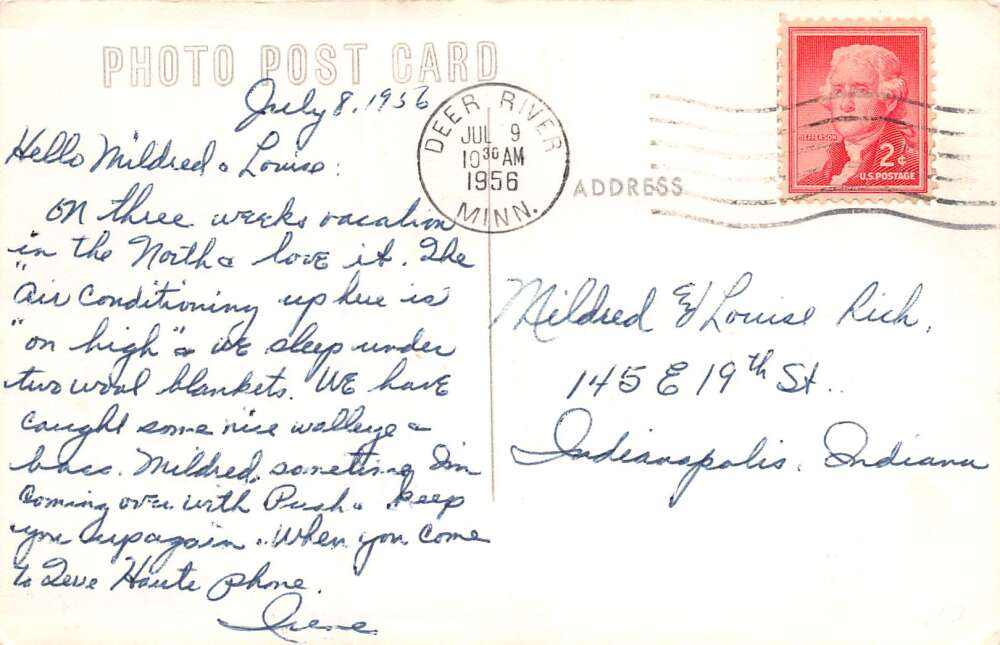 PHOTO POST CARD
July 8, 1956
Hello Mildred & Louise:
On three weeks vacation
in the North & love it. The
"air conditioning up here is
"on high" & we sleep under
two wool blankets. We have
caught some nice walleye &
bass. Mildred, sometime I'm
coming over with Push & keep
you up again. When you come
to Terre Haute phone.
Irene
DEER RIVER
JUL 9
10 30 AM
1956
MINN.
ADDRESS
JEFFERSON
2¢
U.S. POSTAGE
Mildred & Louise Rich,
145 E 19th St.
Indianapolis, Indiana